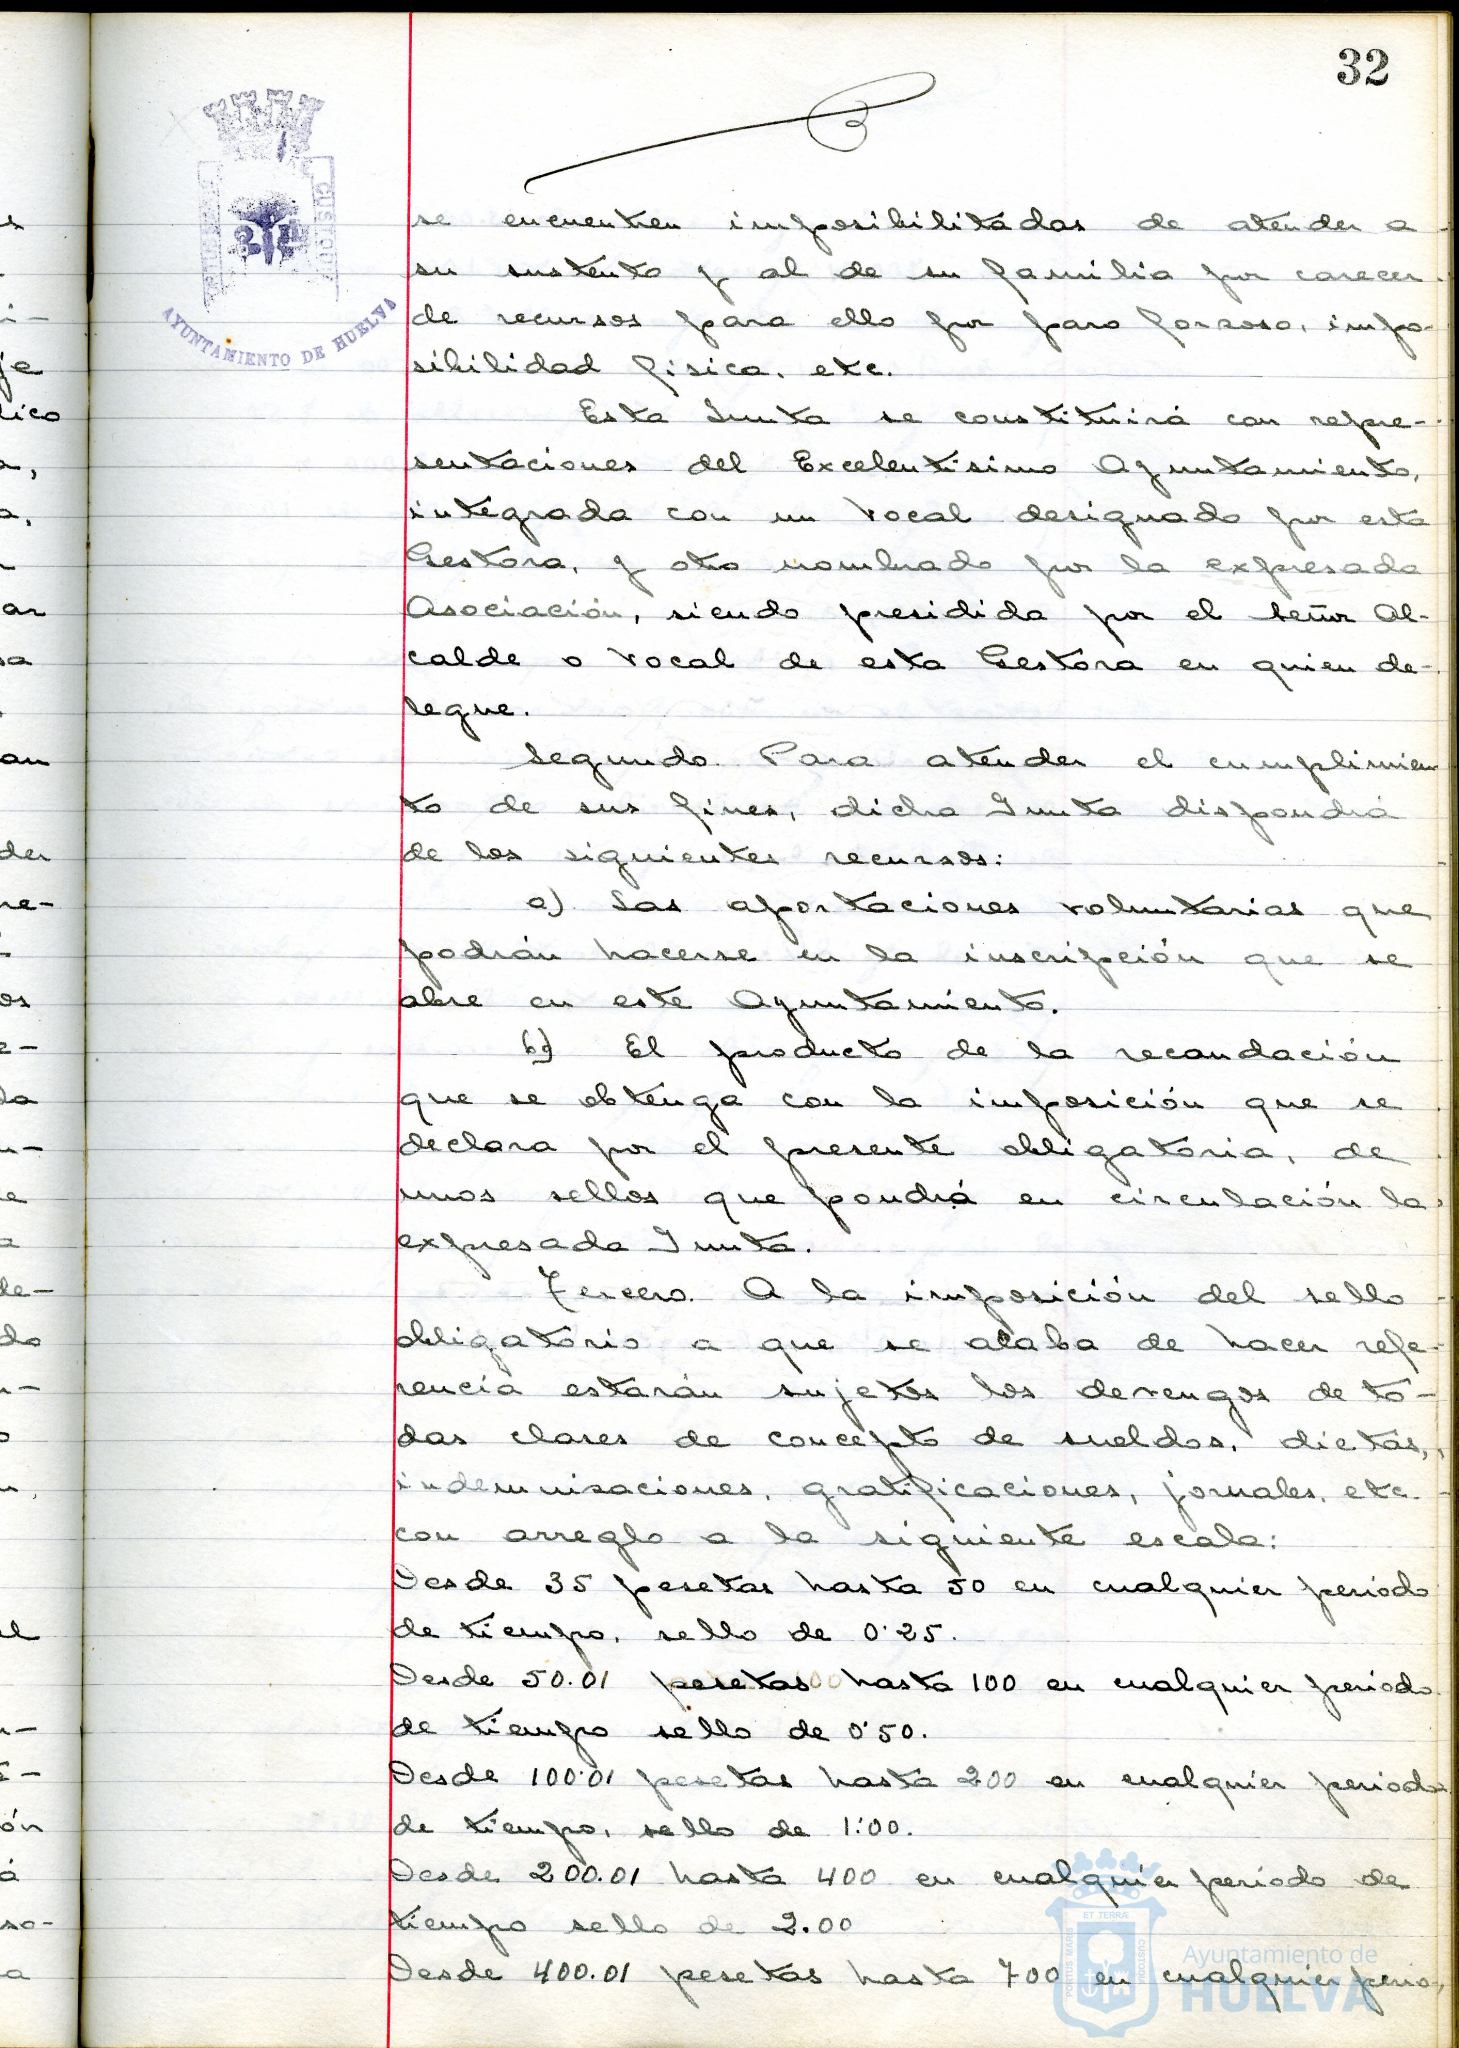 32
se encuentren imposibilitadas de atender a
su sustento y al de su familia por carecer
de recursos para ello por paro forzoso, impo-
sibilidad física, etc.
Esta Junta se constituirá con repre-
sentaciones del Excelentísimo Ayuntamiento,
integrada con un Vocal designado por esta
Gestora, y otro nombrado por la expresada
Asociación, siendo presidida por el Señor Al-
calde o Vocal de esta Gestora en quien de-
legue.
Segundo. Para atender el cumplimien
to de sus fines, dicha Junta dispondrá
de los siguientes recursos:
a) Las aportaciones voluntarias que
podrán hacerse en la inscripción que se
abre en este Ayuntamiento.
b) El producto de la recaudación
que se obtenga con la imposición que se
declara por el presente obligatoria, de
unos sellos que pondrá en circulación la
expresada Junta.
Tercero. A la imposición del sello
obligatorio a que se acaba de hacer refe-
rencia estarán sujetos los devengos de to-
das clases de concepto de sueldos, dietas,
indemnizaciones, gratificaciones, jornales, etc.
con arreglo a la siguiente escala:
Desde 35 pesetas hasta 50 en cualquier periodo
de tiempo, sello de 0'25.
Desde 50.01 pesetas hasta 100 en cualquier periodo
de tiempo sello de 0'50.
Desde 100'01 pesetas hasta 200 en cualquier periodo
de tiempo, sello de 1:00.
Desde 200.01 hasta 400 en cualquier periodo de
tiempo sello de 2.00
Desde 400.01 pesetas hasta 700 en cualquier perio-
AYUNTAMIENTO DE HUELVA
CUSTODIT
PORTUS MARIS
ET TERRÆ
CUSTODIA
Ayuntamiento de
HUELVA